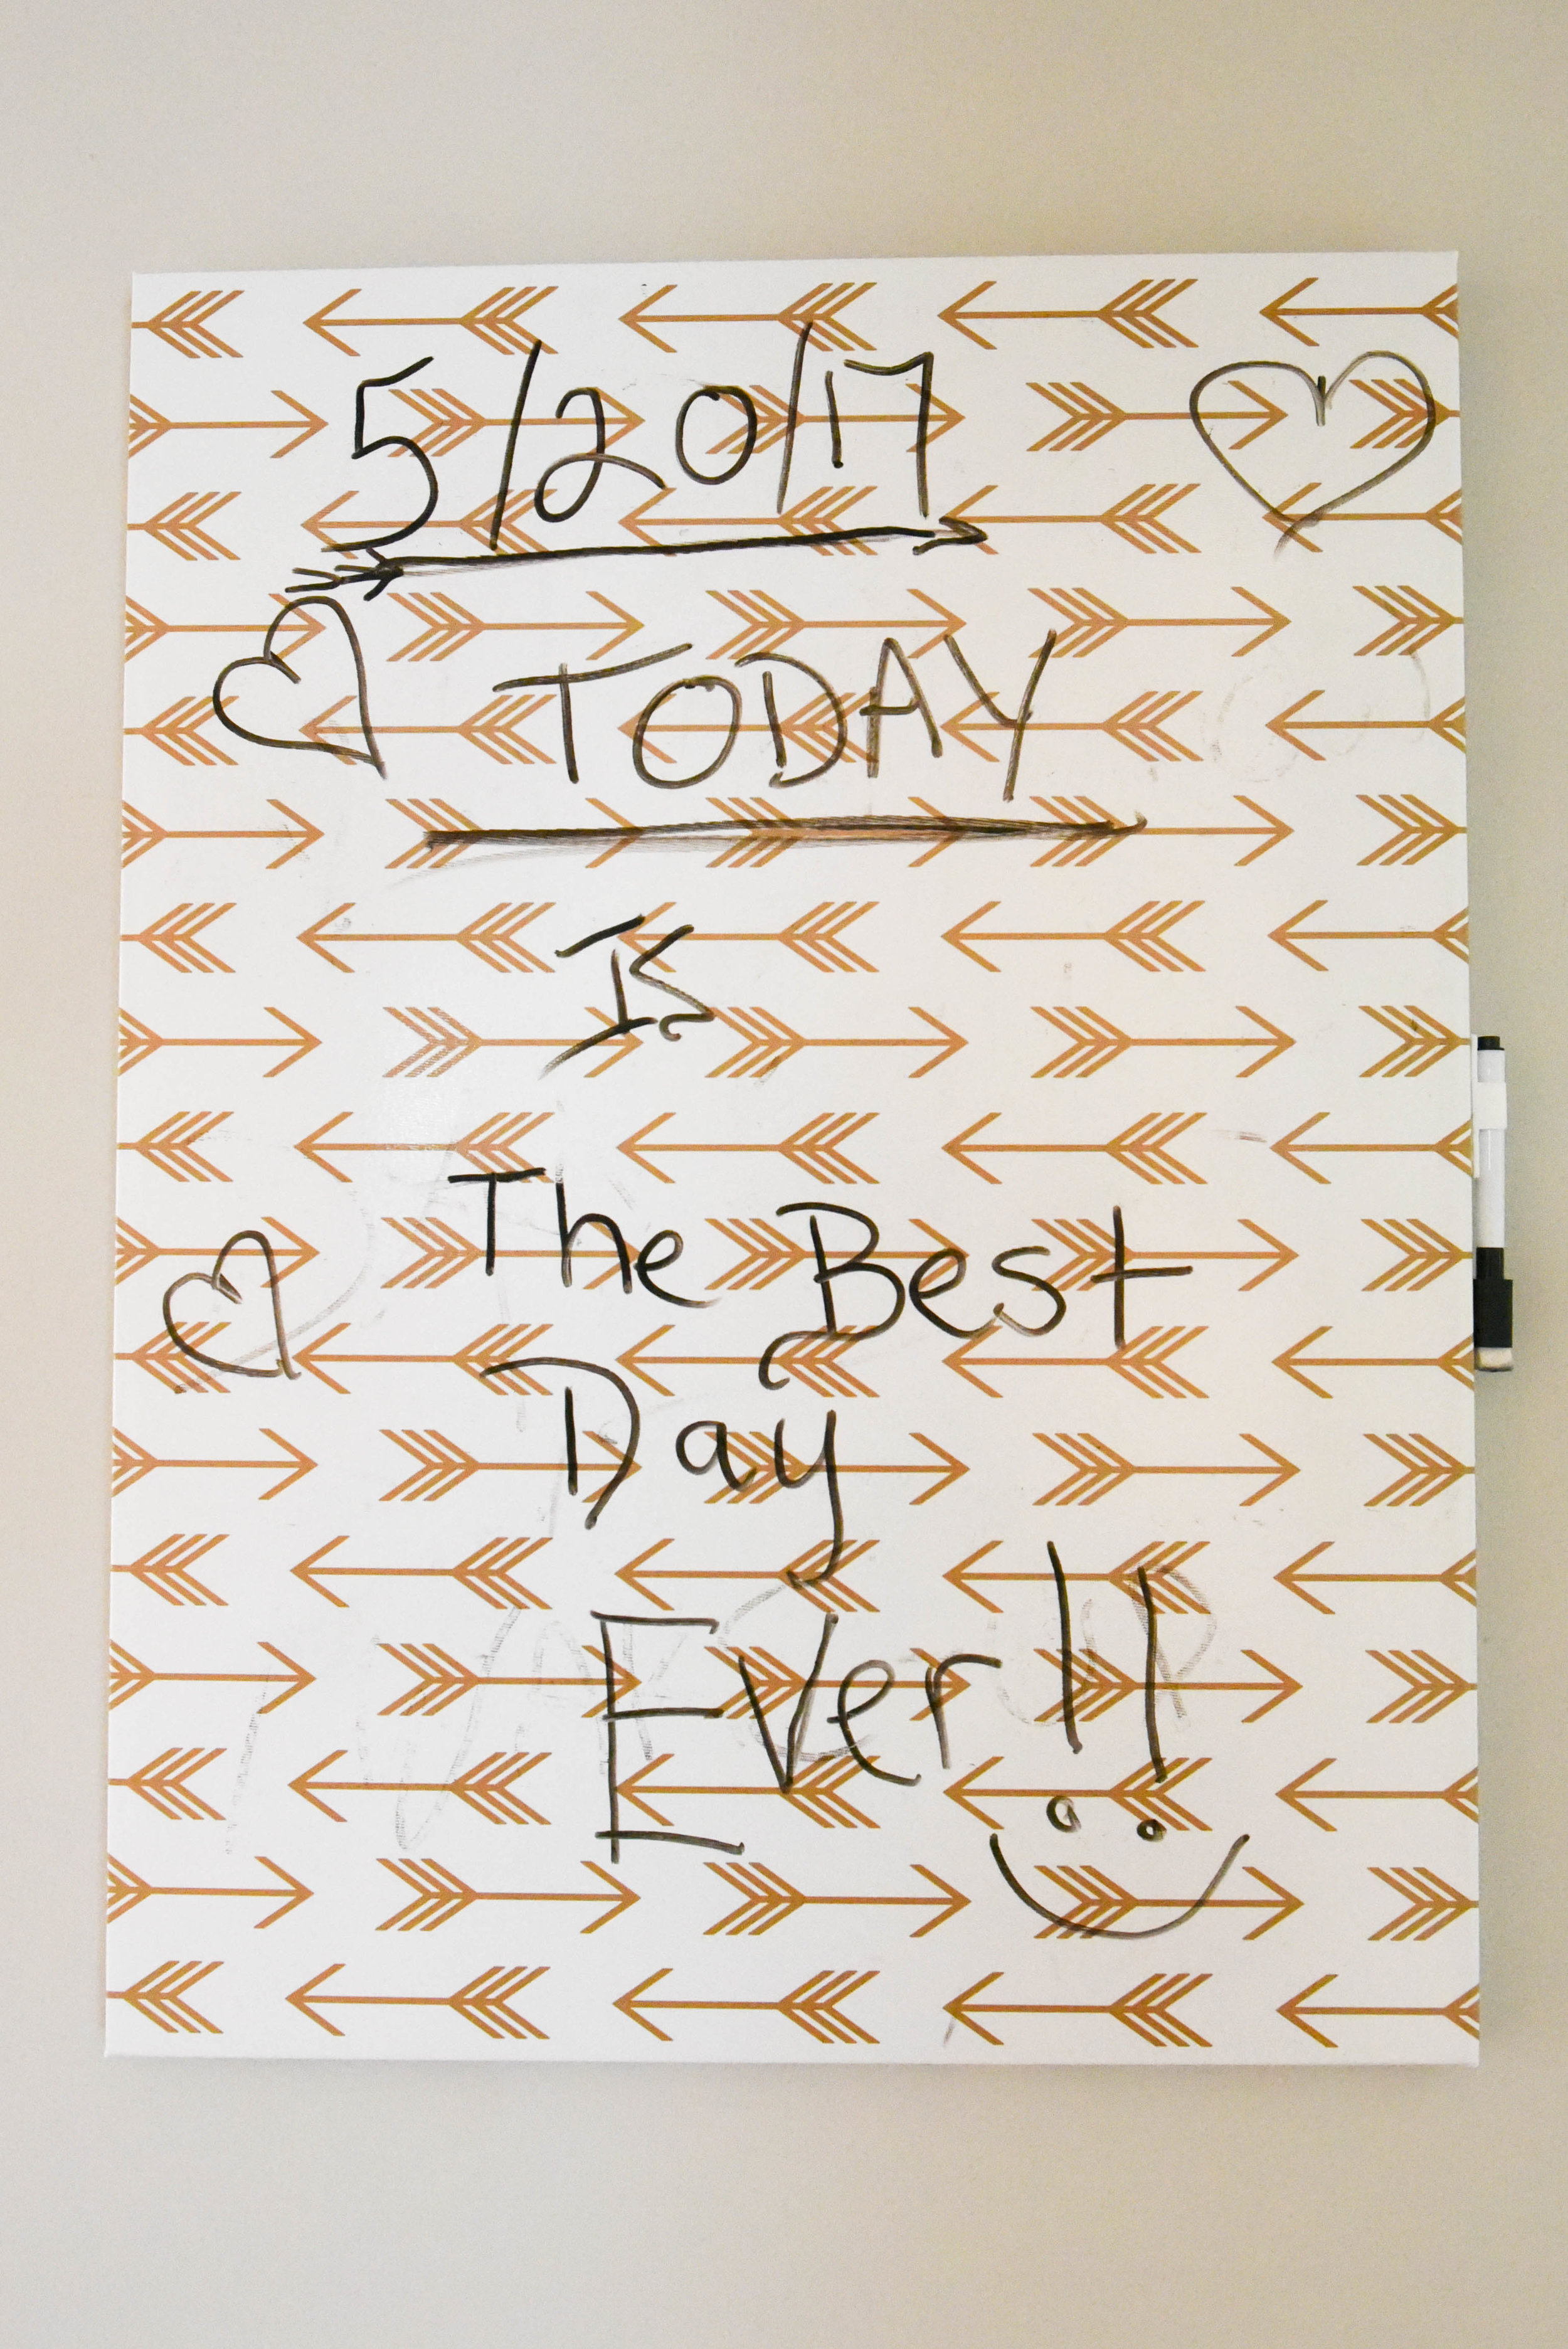 5/20/17
TODAY
Is
The Best
Day
Ever!!